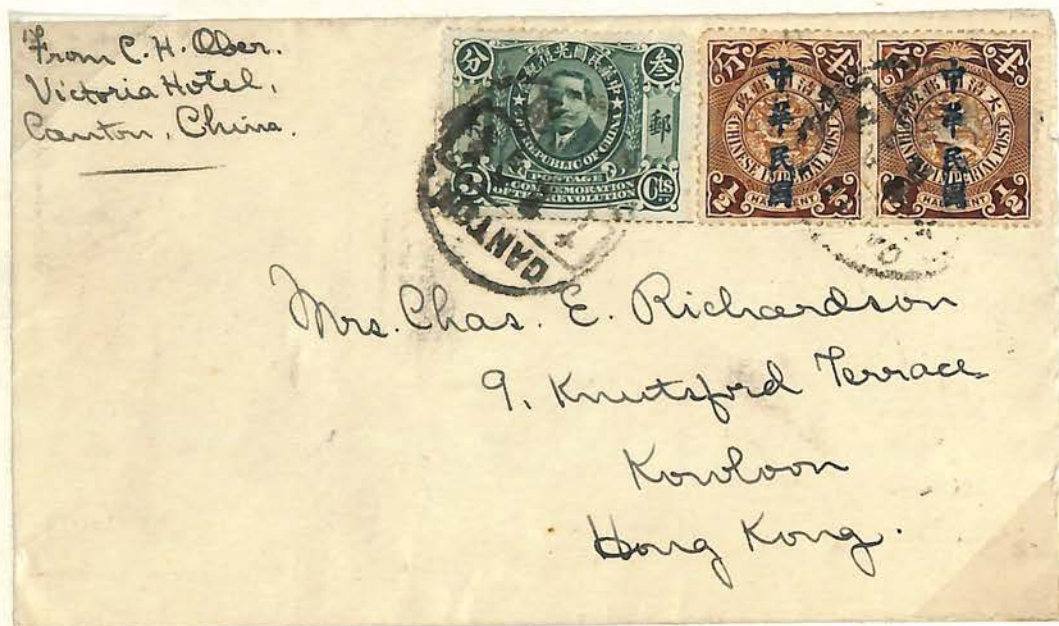 From C. H. Ober.
Victoria Hotel,
Canton, China.
分 叁
中華民國光復紀念
郵
REPUBLIC OF CHINA
POSTAGE
3 COMMEMORATION Cts
OF THE REVOLUTION
CANTON
分 半
大清郵政
中華民國
CHINESE IMPERIAL POST
½ HALF CENT ½
分 半
大清郵政
中華民國
CHINESE IMPERIAL POST
½ HALF CENT ½
Mrs. Chas. E. Richardson
9, Knutsford Terrace
Kowloon
Hong Kong.